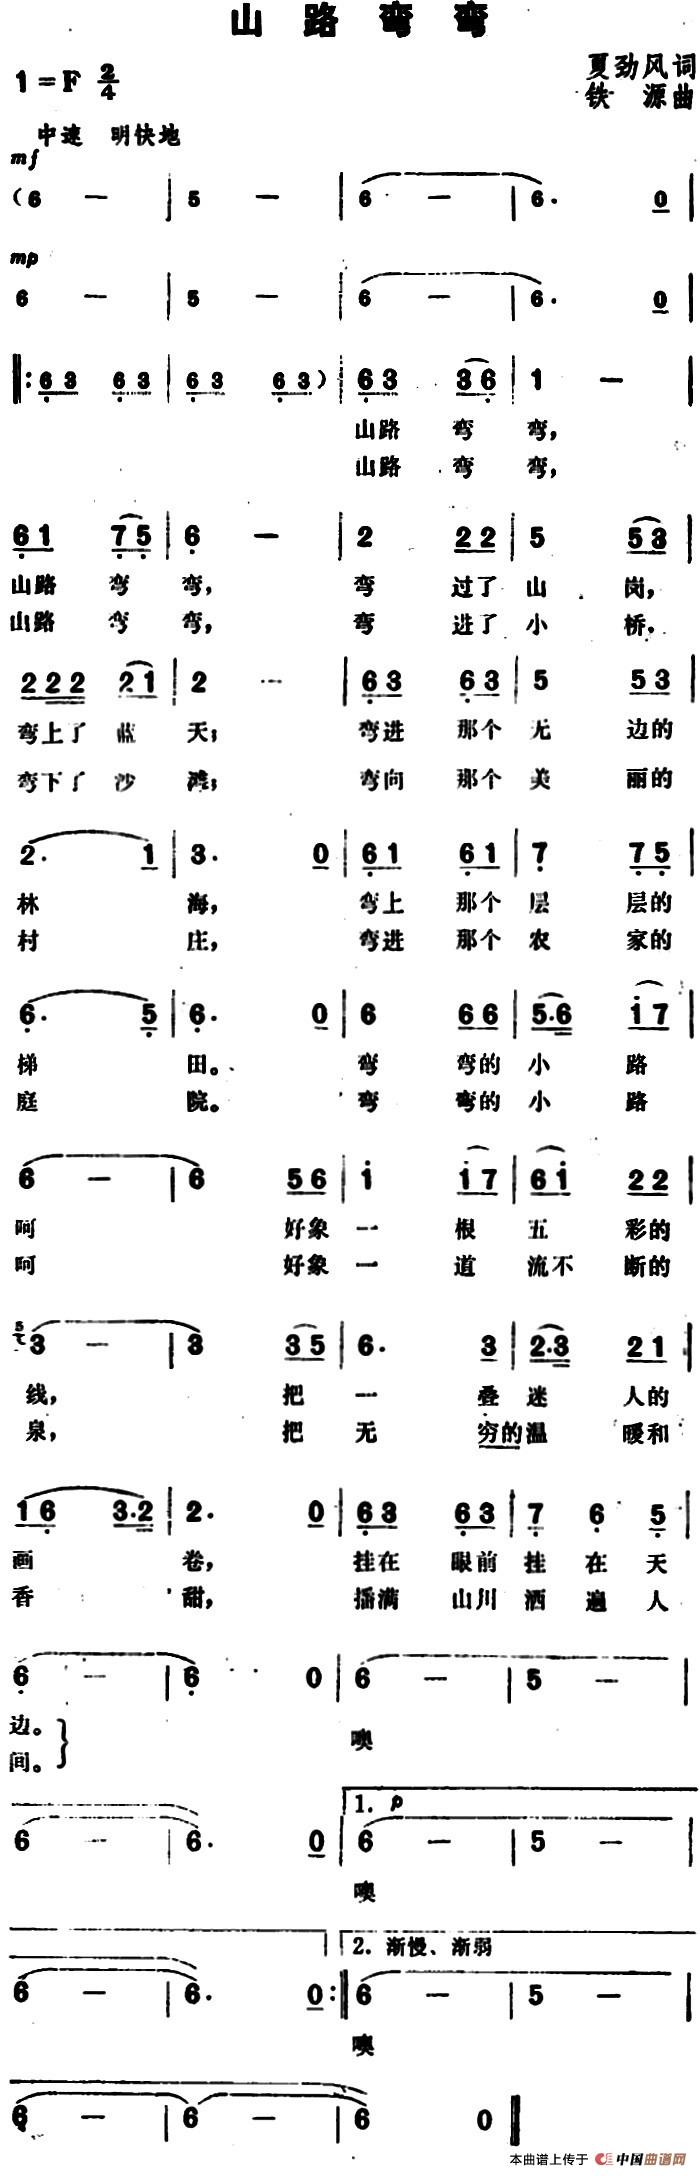 山 路 弯 弯
1=F 2/4
夏劲风词
铁 源曲
中速 明快地
mf
(6 — | 5 — | 6 — | 6. 0 |
mp
6 — | 5 — | 6 — | 6. 0 |
‖: 63 63 | 63 63 ) | 63 36 | 1 — |
山路 弯 弯,
山路 弯 弯,
61 75 | 6 — | 2 22 | 5 53 |
山路 弯 弯, 弯 过了 山 岗,
山路 弯 弯, 弯 进了 小 桥,
222 21 | 2 — | 63 63 | 5 53 |
弯上了 蓝 天; 弯进 那个 无 边的
弯下了 沙 滩; 弯向 那个 美 丽的
2. 1 | 3. 0 | 61 61 | 7 75 |
林 海, 弯上 那个 层 层的
村 庄, 弯进 那个 农 家的
6. 5 | 6. 0 | 6 66 | 5.6 i7 |
梯 田。 弯 弯的 小 路
庭 院。 弯 弯的 小 路
6 — | 6 56 | i i7 | 6i 22 |
呵 好象 一 根 五 彩的
呵 好象 一 道 流不 断的
5 3 — | 3 35 | 6. 3 | 2.3 21 |
线, 把 一 叠 迷 人的
泉, 把 无 穷的 温 暖和
16 3.2 | 2. 0 | 63 63 | 7 6 5 |
画 卷, 挂在 眼前 挂 在 天
香 甜, 播满 山川 洒 遍 人
6 — | 6 0 | 6 — | 5 — |
边。} 噢
间。}
6 — | 6. 0 | 1. p 6 — | 5 — |
噢
6 — | 6. 0 :‖ 2. 渐慢、渐弱 6 — | 5 — |
噢
6 — | 6 — | 6 0 ‖
本曲谱上传于 中国曲谱网